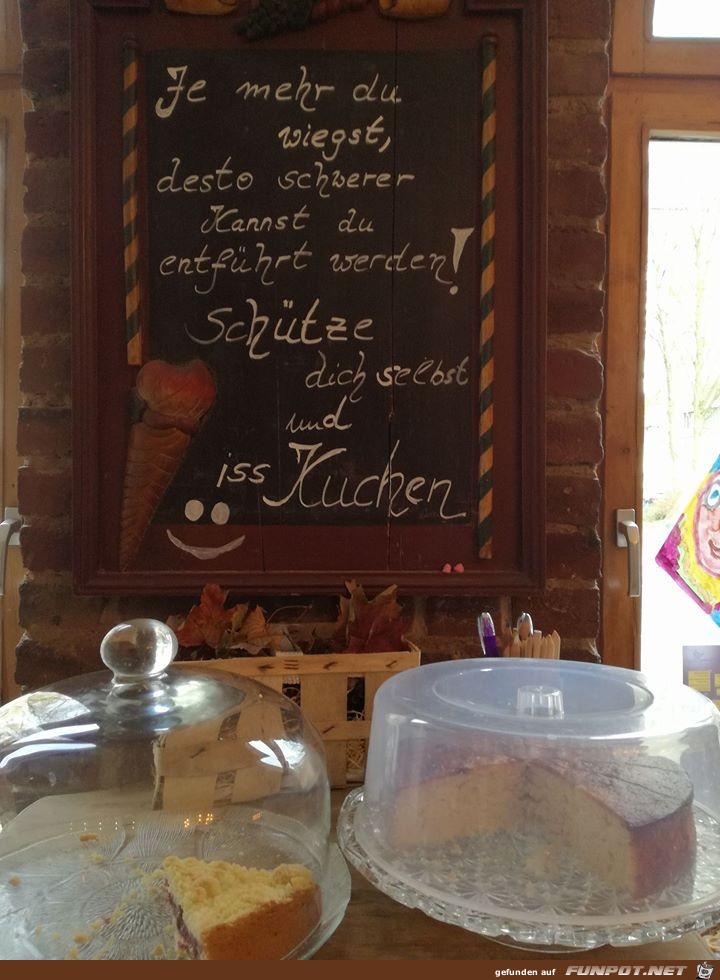 Je mehr du
wiegst,
desto schwerer
Kannst du
entführt werden!
Schütze
dich selbst
und
iss Kuchen
gefunden auf FUNPOT.NET